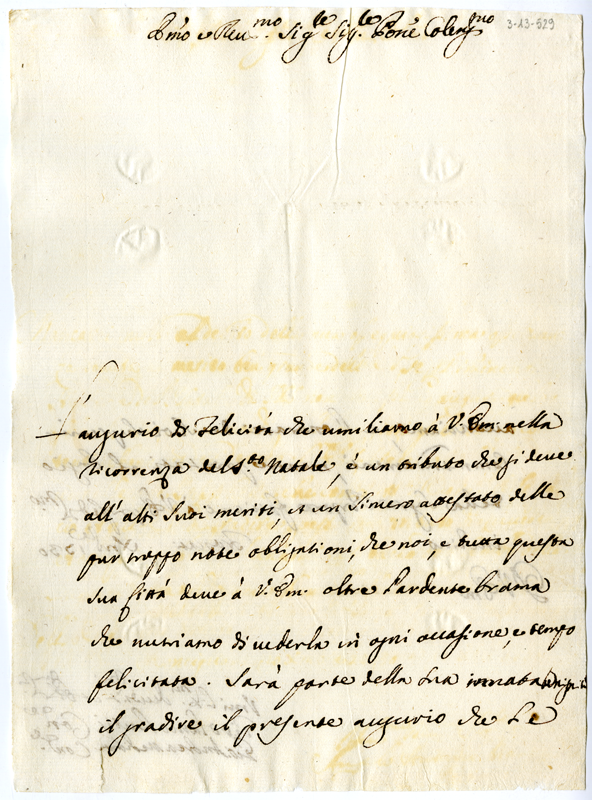 Em̃o e Reu.mo Sig.re Sig.re P̃one Colen̄mo
3-13-529
L'augurio di Felicità che umiliamo à V. Em. nella
ricorrenza del S.to Natale, è un tributo che si deve
all'alti Suoi meriti, et un Sincero attestato delle
pur troppo note obligationi, che noi, e tutta questa
sua Città deve à V. Em. oltre l'ardente brama
che nutriamo di vederla in ogni occasione, e tempo
felicitata. Sarà parte della Sua innata
il gradire il presente augurio che Le